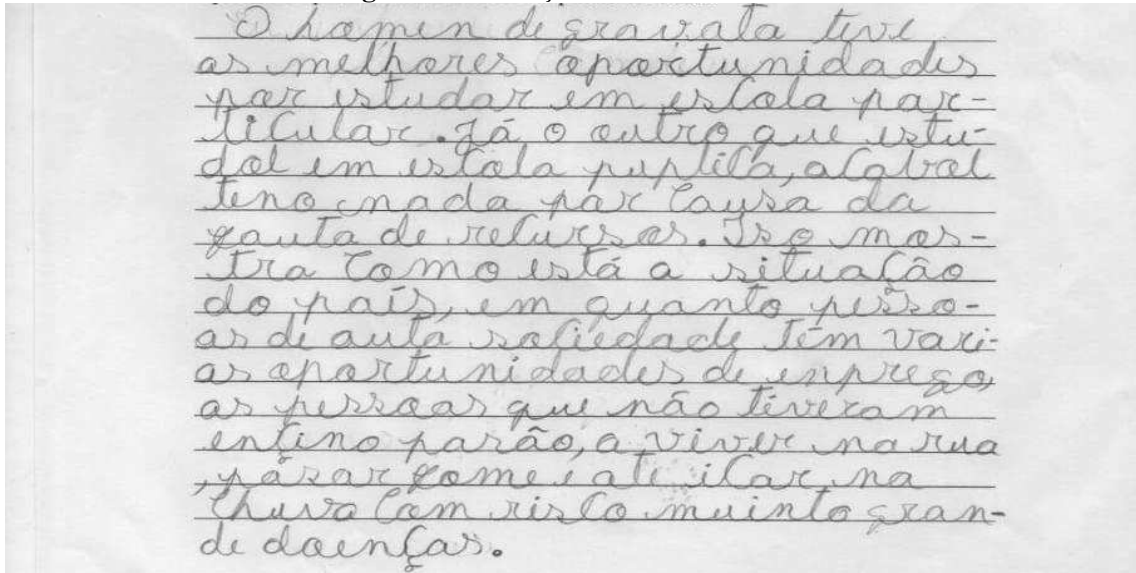 O homen de gravata teve
as melhores oportunidades
por estudar em escola par-
ticular. Já o outro que estu-
dol em escola puplica, acabol
teno nada por causa da
fauta de recursos. Iso mos-
tra como está a situação
do país, em quanto pesso-
as de auta sociedade têm vari-
as oportunidades de enprego,
as pessoas que não tiveram
encino parão, a viver na rua
, pasar fome e até icar na
chuva com risco muinto gran-
de doenças.